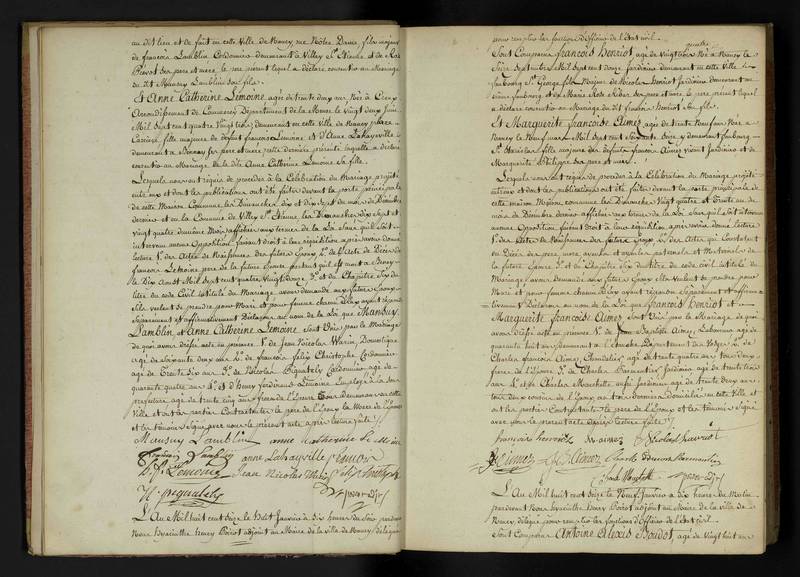 au dit lieu et de fait en cette Ville de Nancy, rue Notre Dame, fils majeur
de françois Lamblin Cordonnier demeurant à Villey St Etienne et de
Prévot ses pere et mere, le pere présent lequel a déclaré consentir au Mariage
du dit Mansuy Lamblin son fils.
Et Anne Catherine Lemoine agée de trente deux ans, Née à
Arrondissement de Commercy Département de la Meuse le vingt deux Juin
Mil Sept cent quatre Vingt trois, demeurant en cette Ville de Nancy place
fille majeure de défunt françois Lemoine et d'Anne Lahayville
demeurant à ses pere et mere, cette derniere présente laquelle a déclaré
consentir au Mariage de la dite Anne Catherine Lemoine sa fille.
Lesquels nous ont requis de procéder à la Célébration du Mariage projetté
entre eux et dont les publications ont été faites devant la porte principale
de cette Maison Commune les Dimanches dix et dix Sept du mois de Décembre
dernier et en la Commune de Villey St Etienne les Dimanches dix Sept et
vingt quatre du même Mois, affichées aux termes de la Loi sans qu'il soit
intervenu aucune Opposition, faisant droit à leur réquisition après avoir donné
lecture 1° des Actes de Naissances des futurs Epoux 2° de l'Acte de Décès de
françois Lemoine pere de la future Epouse portant qu'il est mort à
le Dix Août Mil Sept cent quatre Vingt douze 3° et du Chapitre Six du
titre du code Civil intitulé du Mariage avons demandé aux futurs Epoux
s'ils veulent se prendre pour Mari et pour femme chacun d'eux ayant répondu
Séparément et affirmativement Déclarons au nom de la loi que Mansuy
Lamblin et Anne Catherine Lemoine Sont Unis par le Mariage
de quoi avons dressé acte en présence 1° de Jean Nicolas Marin, Domestique
agé de Soixante deux ans 2° de françois felix Christophe Cordonnier
agé de Trente Six ans 3° de Nicolas Pequatels Cordonnier agé de
quarante quatre ans 4° et d'henry ferdinand Lemoine Employé à la Sous
préfecture agé de trente cinq ans frere de l'Epouse Tous demeurant en cette
Ville et ont les parties Contractantes le pere de l'Epoux la Mere de l'Epouse
et les témoins Signé avec nous le présent acte après lecture faite.
Mansuy Lamblin anne Catherine Le Moine
françois Lamblin anne Lahayville
Lemoine Jean Nicolas
N. Pequatels
L'An Mil huit cent Seize le Huit Janvier à dix heures du Soir pardevant
Nous hyacinthe henry Poirot adjoint au Maire de la ville de Nancy délégué
pour remplir les fonctions d'Officier de l'état civil.
quatre
Sont Comparus françois Henriot, agé de vingt trois Né à Nancy le
Seize Septembre Mil Sept cent Jardinier demeurant en cette Ville
faubourg St George fils Majeur de Nicolas Henriot Jardinier demeurant au
dit faubourg et de Marie Rose ses pere et mere le pere présent lequel
a déclaré consentir au Mariage du dit françois Henriot son fils.
Et Marguerite françoise Aimez agée de trente Neuf ans Née à
Nancy le Neuf mars Mil Sept cent Soixante Seize y demeurant faubourg
St Stanislas fille majeure des défunts françois Aimez vivant Jardinier et de
Marguerite Philippe ses pere et mere.
Lesquels nous ont requis de procéder à la Célébration du Mariage projetté
entre eux et dont les publications ont été faites devant la porte principale de
cette maison Commune les Dimanches Vingt quatre et Trente un du
mois de Décembre dernier affichées aux termes de la Loi sans qu'il soit intervenu
aucune Opposition faisant droit à leur réquisition après avoir donné lecture
1° des Actes de Naissances des futurs Epoux 2° des Actes qui Constatent
les Décès des pere mere ayeuls et ayeules paternels et Maternels de
la future Epouse 3° et du Chapitre Six du titre du code civil intitulé du
Mariage avons demandé aux futurs Epoux s'ils veulent se prendre pour
Mari et pour femme chacun d'eux ayant répondu Séparément et affirma-
tivement Déclarons au nom de la loi que françois Henriot et
Marguerite françoise Aimez Sont Unis par le Mariage de quoi
avons dressé acte en présence 1° de Jean Baptiste Aimez, Laboureur agé de
quarante huit ans demeurant à Département des Vosges 2° de
Charles françois Aimez Chandelier agé de trente quatre ans tous deux
freres de l'Epouse 3° de Charles Parmentier Jardinier agé de trente trois
ans 4° et de Charles Marchette aussi Jardinier agé de trente deux ans
tous deux cousins de l'Epoux ces trois derniers Domiciliés en cette Ville et
ont les parties Contractantes le pere de l'Epoux et les témoins Signé
avec nous le présent acte après lecture faite.
françois henriot m f aimez Nicolas hanriot
Aimez J B Aimez Charles Parmentier
Charles Marchette
L'An Mil huit cent Seize le Neuf Janvier à dix heures du Matin
pardevant Nous hyacinthe henry Poirot adjoint au Maire de la ville de
Nancy délégué pour remplir les fonctions d'Officier de l'état Civil.
Sont Comparus Antoine Alexis Boudot, agé de vingt huit ans